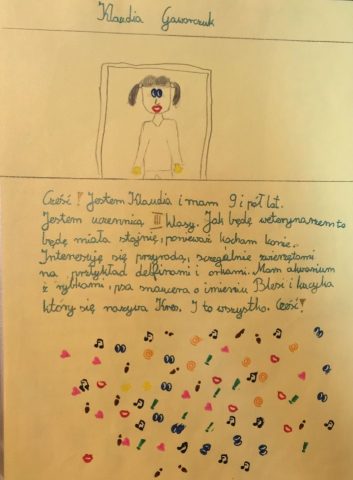 Klaudia Gaworczuk
Cześć! Jestem Klaudia i mam 9 i pół lat.
Jestem uczennicą III klasy. Jak będę weterynarzem to
będę miała stajnię, ponieważ kocham konie.
Interesuję się przyrodą, szczegalnie zwierzętami
na przykład delfinami i orkami. Mam akwarium
z rybkami, psa sznaucera o imieniu Blesi i kucyka
który się nazywa Kres. I to wszystko. Cześć!